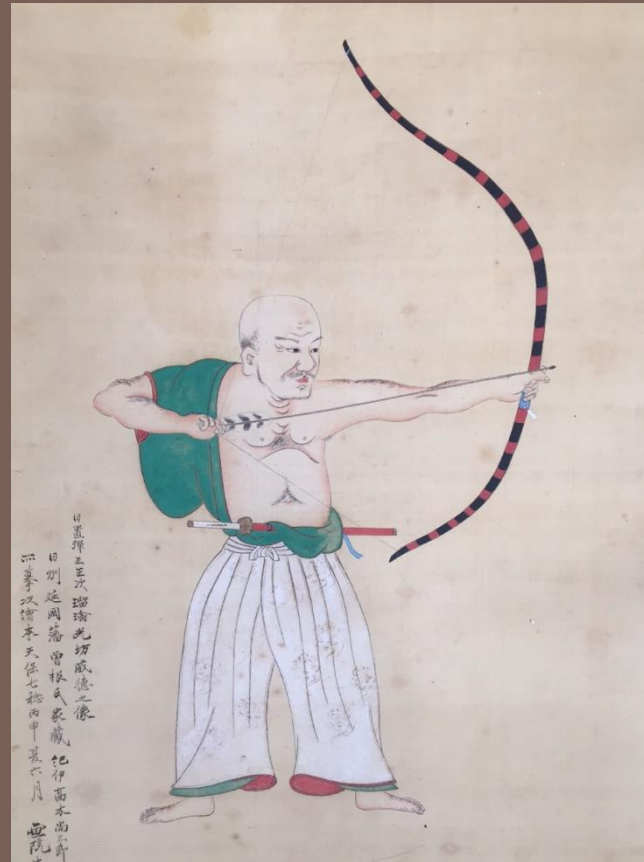 日置弾正正次 瑠璃光坊威徳之像
日州延岡藩 曽根氏家蔵 紀伊高木尚三郎
以摹次繪本 天保七稔丙申 六月